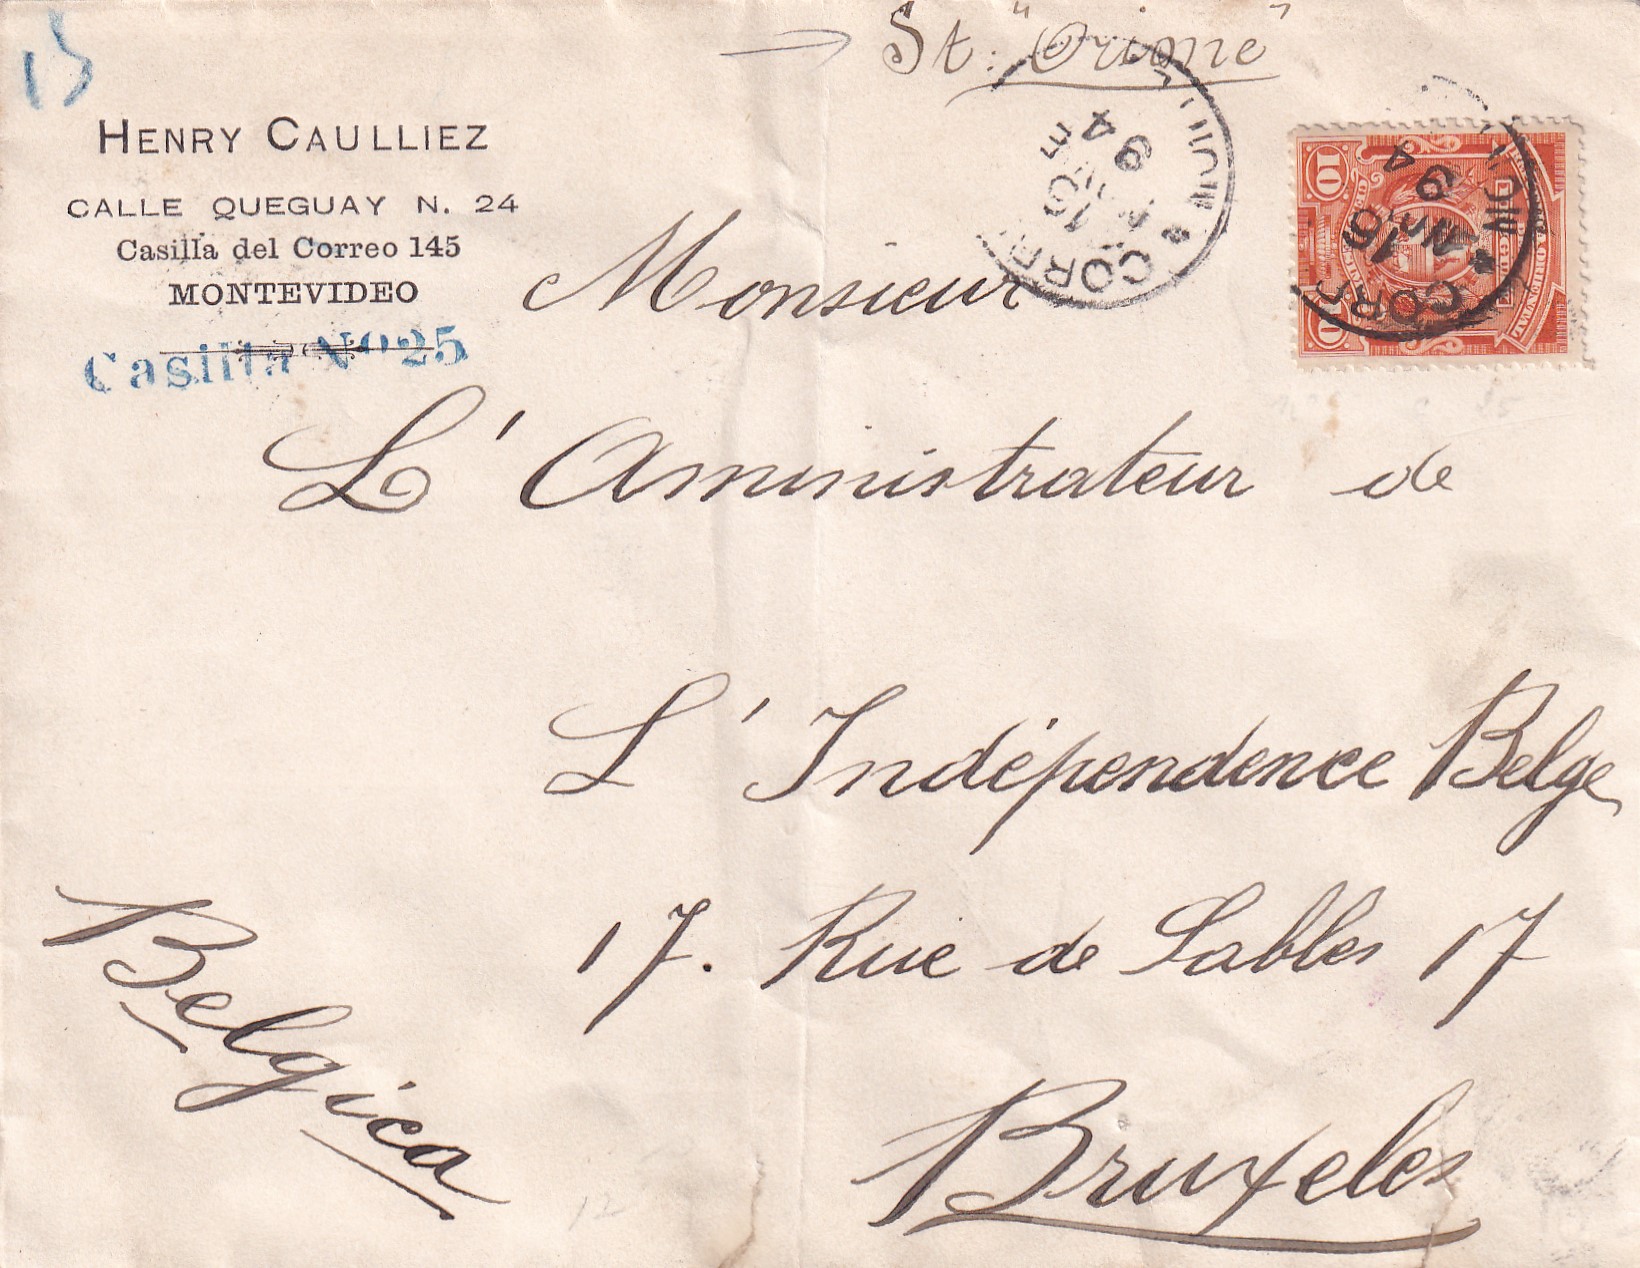 15
St: "Orione"
HENRY CAULLIEZ
CALLE QUEGUAY N. 24
Casilla del Correo 145
MONTEVIDEO
Casilla Nº 25
CORR
15
94
10
10
CORR
15
94
Monsieur
L'Aministrateur de
L'Indépendence Belge
17. Rue de Sables 17
Bruxeles
Belgica
12